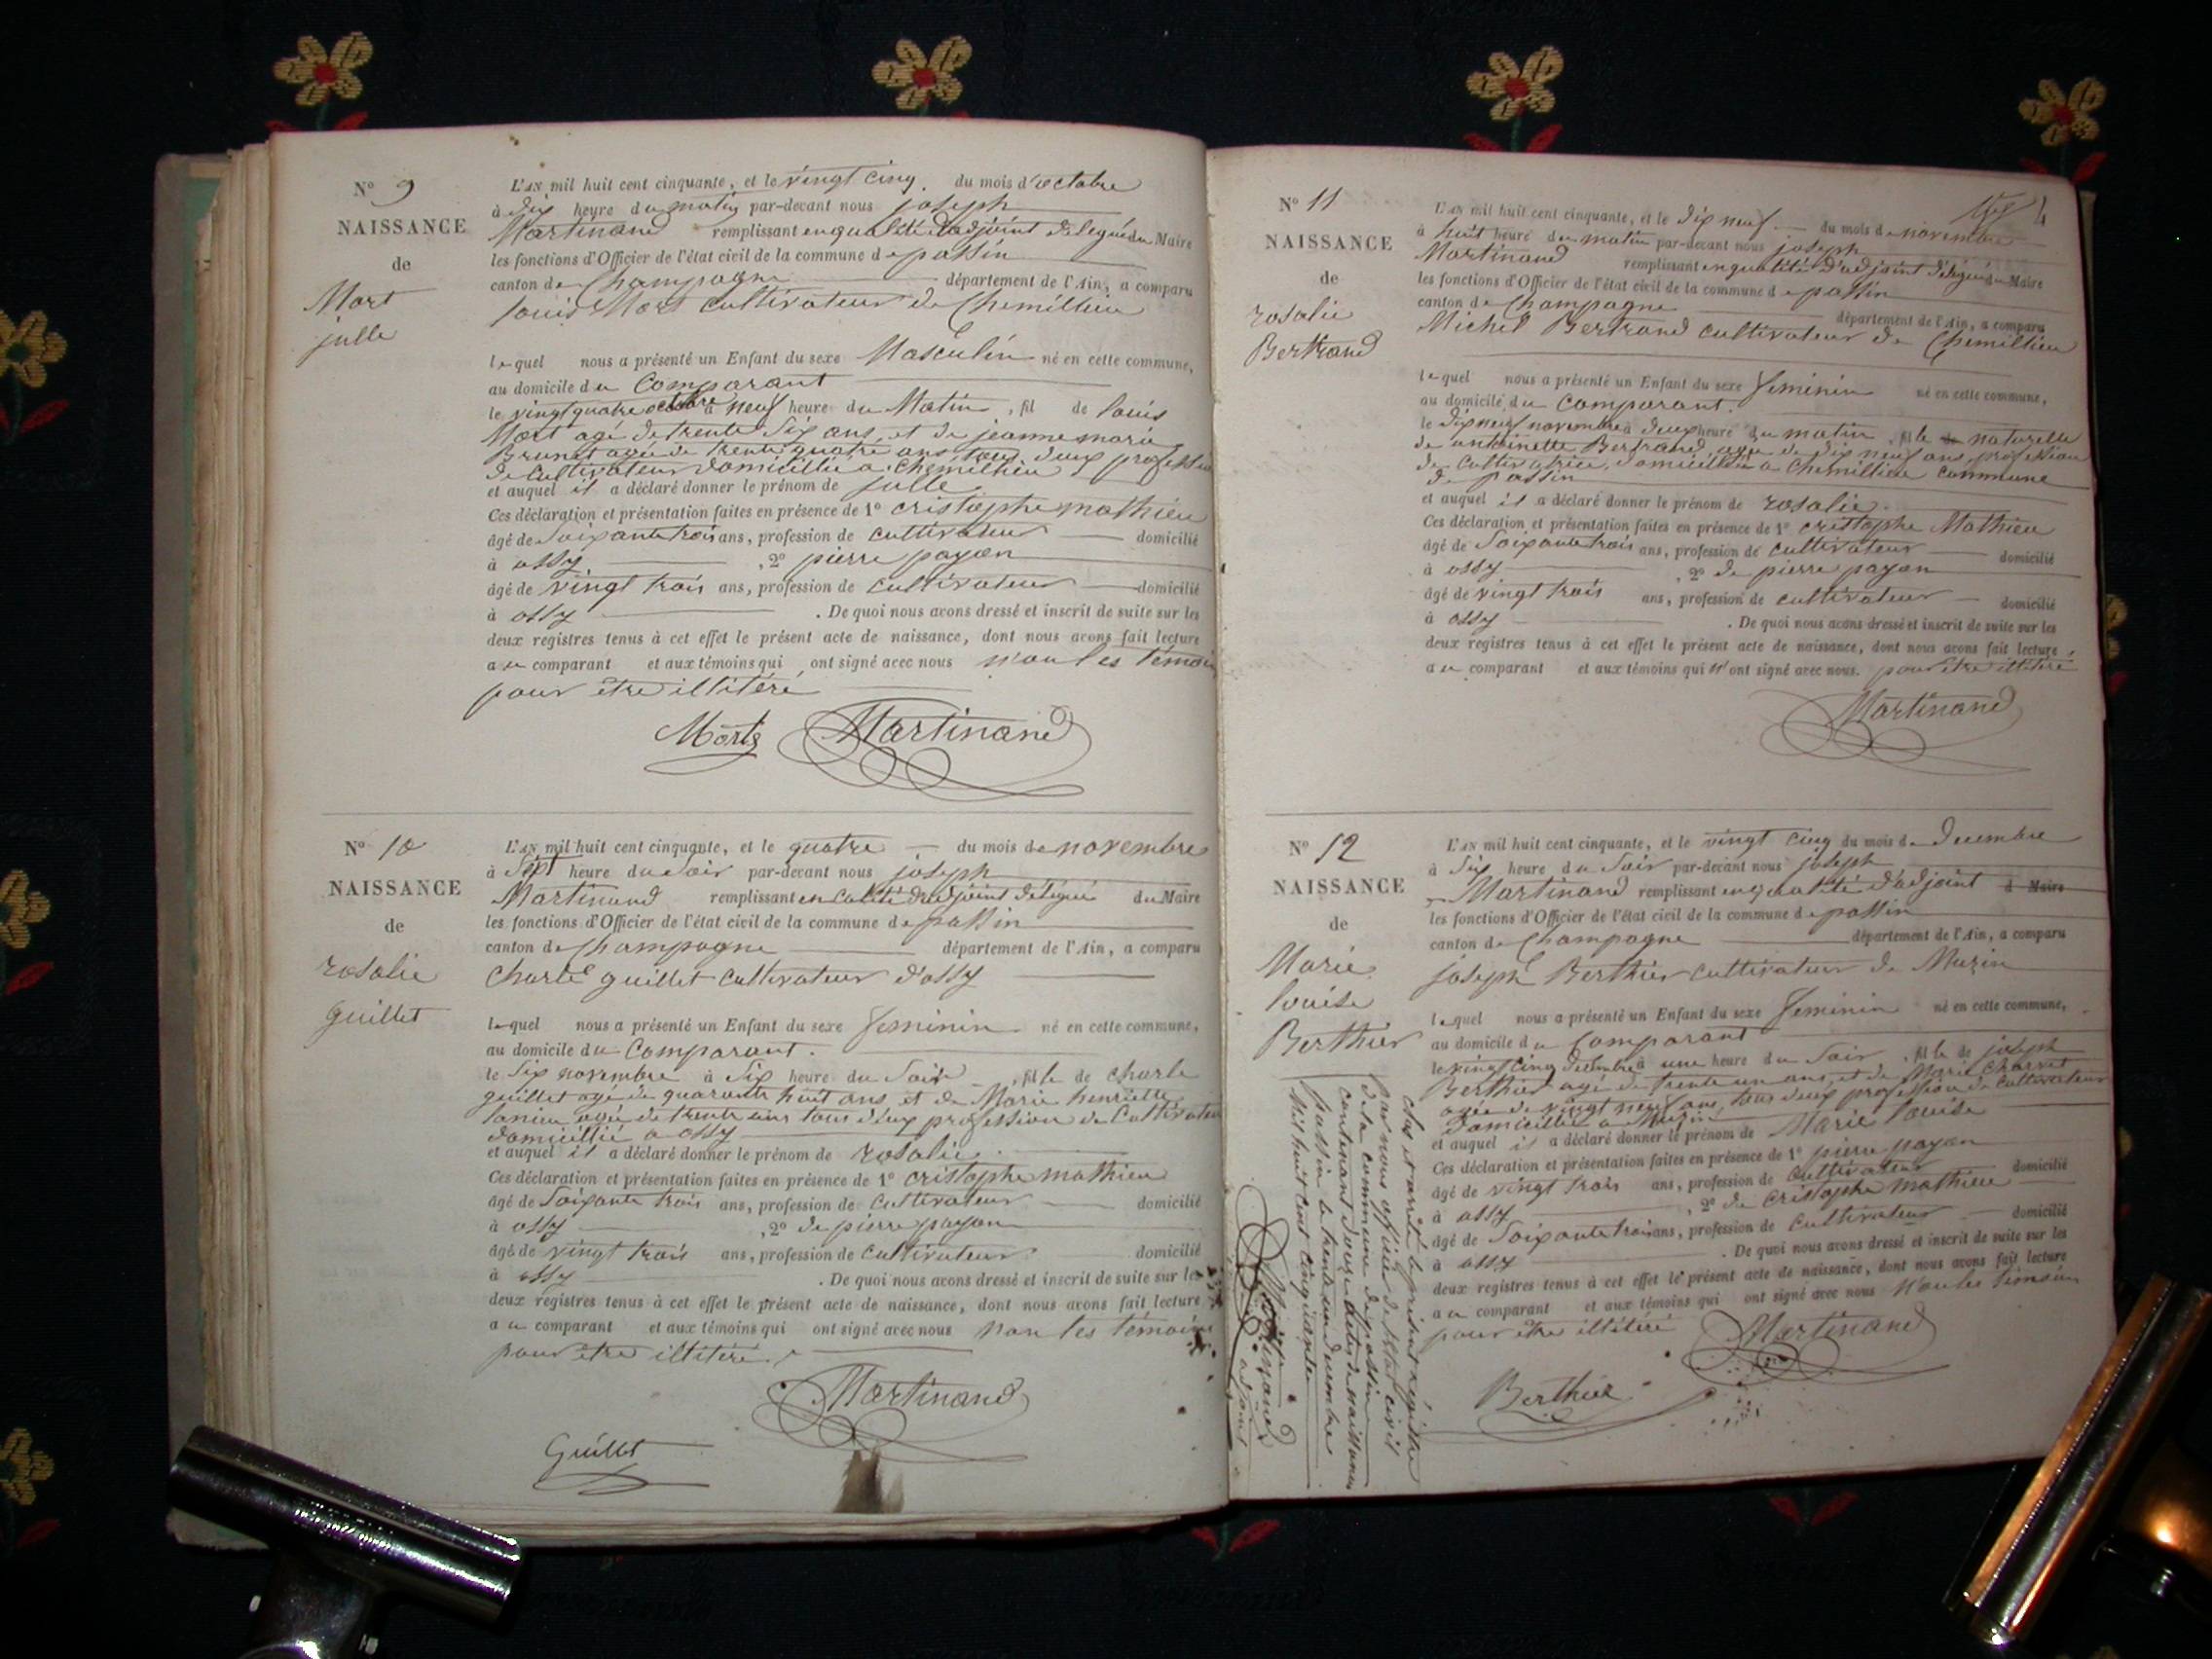 N° 9
NAISSANCE
de
Mort
julle
L'AN mil huit cent cinquante, et le vingt cinq du mois d'octobre
à dix heure du matin par-devant nous joseph
Martinand remplissant en qualité d'adjoint délegué du Maire
les fonctions d'Officier de l'état civil de la commune de passin
canton de Champagne département de l'Ain, a comparu
louis Mort cultivateur de Chemillieu
lequel nous a présenté un Enfant du sexe Masculin né en cette commune,
au domicile du Comparant
le vingt quatre octobre à neuf heure du Matin, fil de louis
Mort agé de trente six ans, et de jeanne marie
Brunet agée de trente quatre ans tous deux profession
de Cultivateur domicillié a Chemillieu
et auquel il a déclaré donner le prénom de julle
Ces déclaration et présentation faites en présence de 1° cristophe mathieu
âgé de Soixante trois ans, profession de cultivateur domicilié
à ossy, 2° pierre payan
âgé de vingt trois ans, profession de cultivateur domicilié
à ossy. De quoi nous avons dressé et inscrit de suite sur les
deux registres tenus à cet effet le présent acte de naissance, dont nous avons fait lecture
au comparant et aux témoins qui ont signé avec nous non les témoin
pour être illitéré
Mort Martinand
N° 10
NAISSANCE
de
rosalie
guillet
L'AN mil huit cent cinquante, et le quatre du mois de novembre
à Sept heure du Soir par-devant nous joseph
Martinand remplissant en calité d'adjoint délegué du Maire
les fonctions d'Officier de l'état civil de la commune de passin
canton de Champagne département de l'Ain, a comparu
Charle guillet cultivateur d'ossy
lequel nous a présenté un Enfant du sexe feminin né en cette commune,
au domicile du Comparant.
le Six novembre à Six heure du Soir, fille de charle
guillet agé de quarante huit ans et de Marie henriette
agée de trente tous deux profession de Cultivateur
domicillié a ossy
et auquel il a déclaré donner le prénom de rosalie.
Ces déclaration et présentation faites en présence de 1° cristophe mathieu
âgé de Soixante trois ans, profession de Cultivateur domicilié
à ossy, 2° de pierre payan
âgé de vingt trois ans, profession de Cultivateur domicilié
à ossy. De quoi nous avons dressé et inscrit de suite sur les
deux registres tenus à cet effet le présent acte de naissance, dont nous avons fait lecture
au comparant et aux témoins qui ont signé avec nous non les témoins
pour être illitéré.
Martinand
Guillet
4
N° 11
NAISSANCE
de
rosalie
Bertrand
L'AN mil huit cent cinquante, et le dix neuf du mois de novembre
à huit heure du matin par-devant nous joseph
Martinand remplissant en qualité d'adjoint délegué du Maire
les fonctions d'Officier de l'état civil de la commune de passin
canton de Champagne département de l'Ain, a comparu
Michel Bertrand cultivateur de Chemillieu
lequel nous a présenté un Enfant du sexe feminin né en cette commune,
au domicile du Comparant.
le dix neuf novembre à deux heure du matin, fille de naturelle
de antoinette Bertrand agée de dix neuf ans, profession
de Cultivatrice, domicillié a Chemillieu commune
de passin
et auquel il a déclaré donner le prénom de rosalie.
Ces déclaration et présentation faites en présence de 1° cristophe Mathieu
âgé de Soixante trois ans, profession de cultivateur domicilié
à ossy, 2° de pierre payan
âgé de vingt trois ans, profession de cultivateur domicilié
à ossy. De quoi nous avons dressé et inscrit de suite sur les
deux registres tenus à cet effet le présent acte de naissance, dont nous avons fait lecture
au comparant et aux témoins qui n'ont signé avec nous. pour être illitéré
Martinand
N° 12
NAISSANCE
de
Marie
louise
Berthier
L'AN mil huit cent cinquante, et le vingt cinq du mois de decembre
à Six heure du Soir par-devant nous joseph
Martinand remplissant en qualité d'adjoint d Maire
les fonctions d'Officier de l'état civil de la commune de passin
canton de Champagne département de l'Ain, a comparu
joseph Berthier cultivateur de Muzin
lequel nous a présenté un Enfant du sexe feminin né en cette commune,
au domicile du Comparant
le vingt cinq decembre à une heure du Soir, fille de joseph
Berthier agé de trente un ans, et de Marie Charvet
agée de vingt neuf ans, tous deux profession de Cultivateur
domicillié a Muzin
et auquel il a déclaré donner le prénom de Marie louise
Ces déclaration et présentation faites en présence de 1° pierre payan
âgé de vingt trois ans, profession de Cultivateur domicilié
à ossy, 2° de cristophe mathieu
âgé de Soixante trois ans, profession de Cultivateur domicilié
à ossy. De quoi nous avons dressé et inscrit de suite sur les
deux registres tenus à cet effet le présent acte de naissance, dont nous avons fait lecture
au comparant et aux témoins qui ont signé avec nous non les témoin
pour être illitéré
Martinand
Berthier
clos et arrêté le présent régistre
par nous officier de l'état civil
de la commune de passin
contenant douze actes de naissances
passin le trente un decembre
Mil huit cent cinquante
Martinand
adjoint